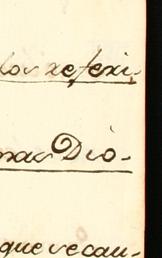 los referi-
mas Dió-
que se cau-